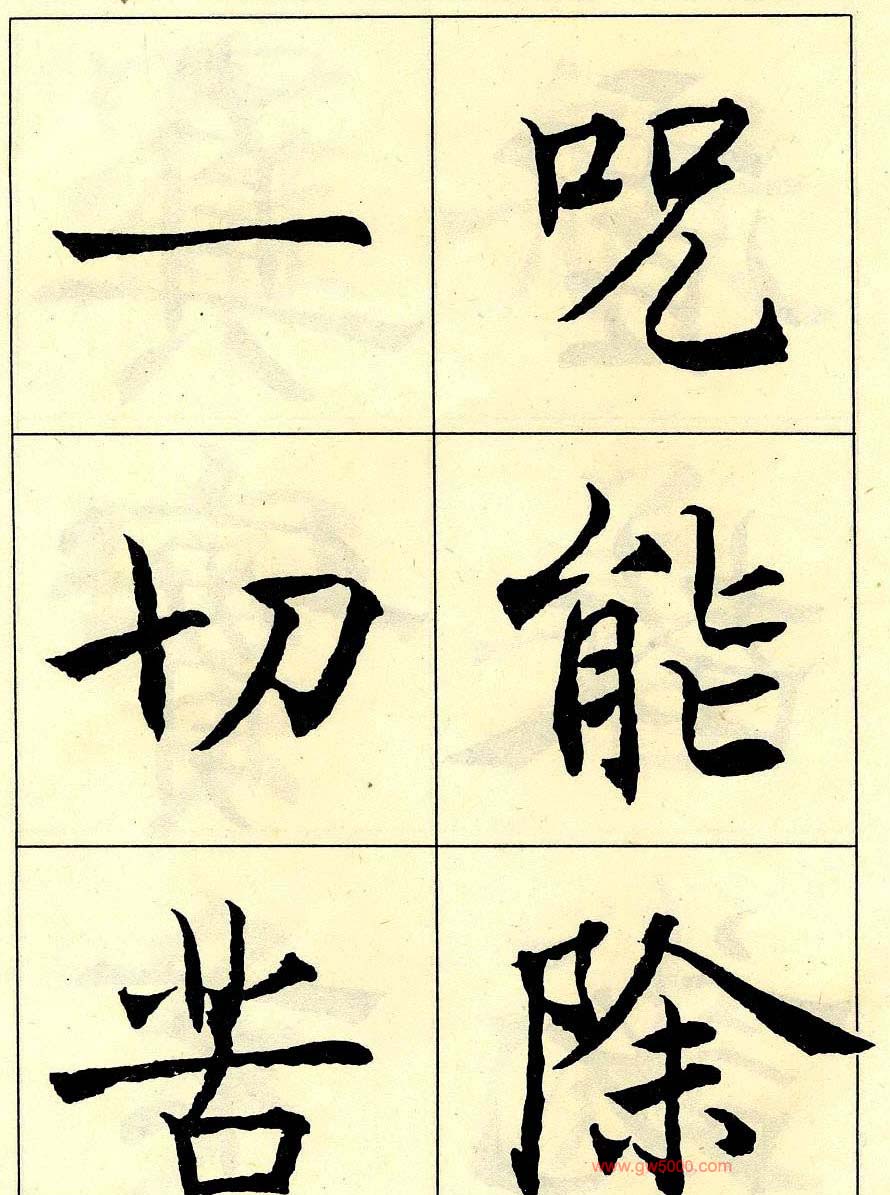 咒能除
一切苦
www.gw5000.com